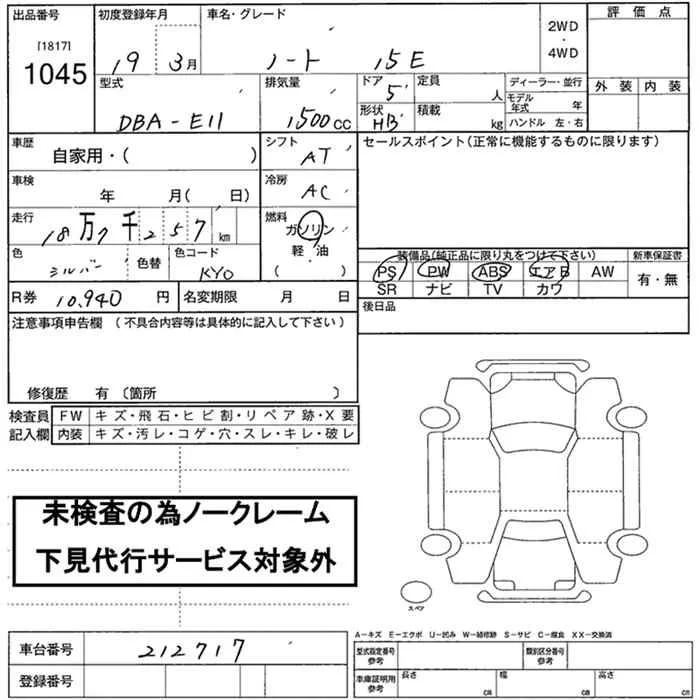 出品番号 初度登録年月 車名・グレード 2WD・4WD 評価点
[1817]
1045 19 3月 ノート 15E
外装 内装
型式 排気量 ドア 定員 ディーラー・並行
DBA-E11 1500cc 5 人 モデル年式 年
形状 積載 ハンドル 左・右
HB kg
車歴 シフト セールスポイント(正常に機能するものに限ります)
自家用・( ) AT
車検 冷房
年 月( 日) AC
走行 燃料
18万7千257km ガソリン
軽・油
( )
色 色替 色コード 装備品(純正品に限り丸をつけて下さい) 新車保証書
シルバー KY0 PS PW ABS エアB AW 有・無
SR ナビ TV カワ
R券 10,940円 名変期限 月 日 後日品
注意事項申告欄(不具合内容等は具体的に記入して下さい)
修復歴 有〔箇所 〕
検査員 FW キズ・飛石・ヒビ割・リペア跡・X要
記入欄 内装 キズ・汚レ・コゲ・穴・スレ・キレ・破レ
未検査の為ノークレーム
下見代行サービス対象外
スペア
A-キズ E-エクボ U-凹み W-補修跡 S-サビ C-腐食 XX-交換済
車台番号 212717 型式指定番号 参考 類別区分番号 参考
登録番号 車庫証明用 参考 長さ cm 幅 cm 高さ cm